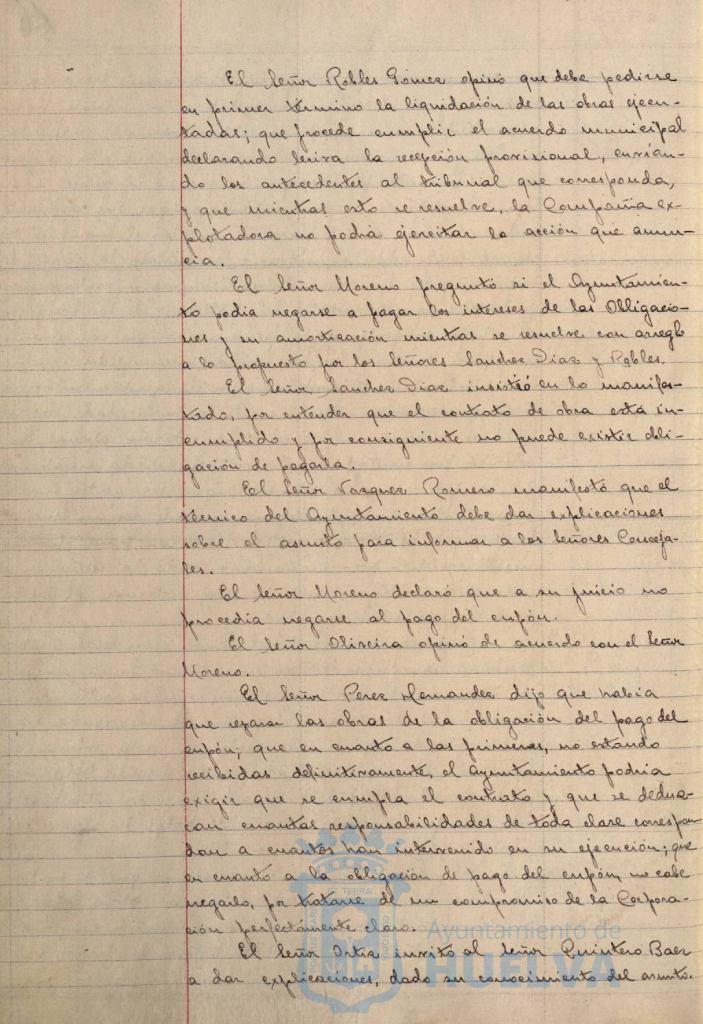 El Señor Robles Gómez opinó que debe pedirse
en primer termino la liquidación de las obras ejecu-
tadas; que procede cumplir el acuerdo municipal
declarando lesiva la recepción provisional, envian-
do los antecedentes al tribunal que corresponda,
y que mientras esto se resuelve, la Compañia ex-
plotadora no podrá ejercitar la acción que anun-
cia.
El Señor Moreno preguntó si el Ayuntamien-
to podia negarse a pagar los intereses de las Obligacio-
nes y su amortización mientras se resuelve con arreglo
a lo propuesto por los Señores Sanchez Diaz y Robles.
El Señor Sanchez Diaz insistió en lo manifes-
tado, por entender que el contrato de obra está in-
cumplido y por consiguiente no puede existir obli-
gación de pagarla.
El Señor Vazquez Romero manifestó que el
técnico del Ayuntamiento debe dar explicaciones
sobre el asunto para informar a los Señores Conceja-
les.
El Señor Moreno declaró que a su juicio no
procedia negarse al pago del cupón.
El Señor Oliveira opinó de acuerdo con el Señor
Moreno.
El Señor Perez Hernandez dijo que habia
que separar las obras de la obligación del pago del
cupón; que en cuanto a las primeras, no estando
recibidas definitivamente, el Ayuntamiento podria
exigir que se cumpla el contrato y que se deduz-
can cuantas responsabilidades de toda clase correspon
dan a cuantos han intervenido en su ejecución; que
en cuanto a la obligación de pago del cupón, no cabe
negarlo, por tratarse de un compromiso de la Corpora-
ción perfectamente claro.
El Señor Ortiz invitó al Señor Quintero Baez
a dar explicaciones, dado su conocimiento del asunto.
Ayuntamiento de
HUELVA